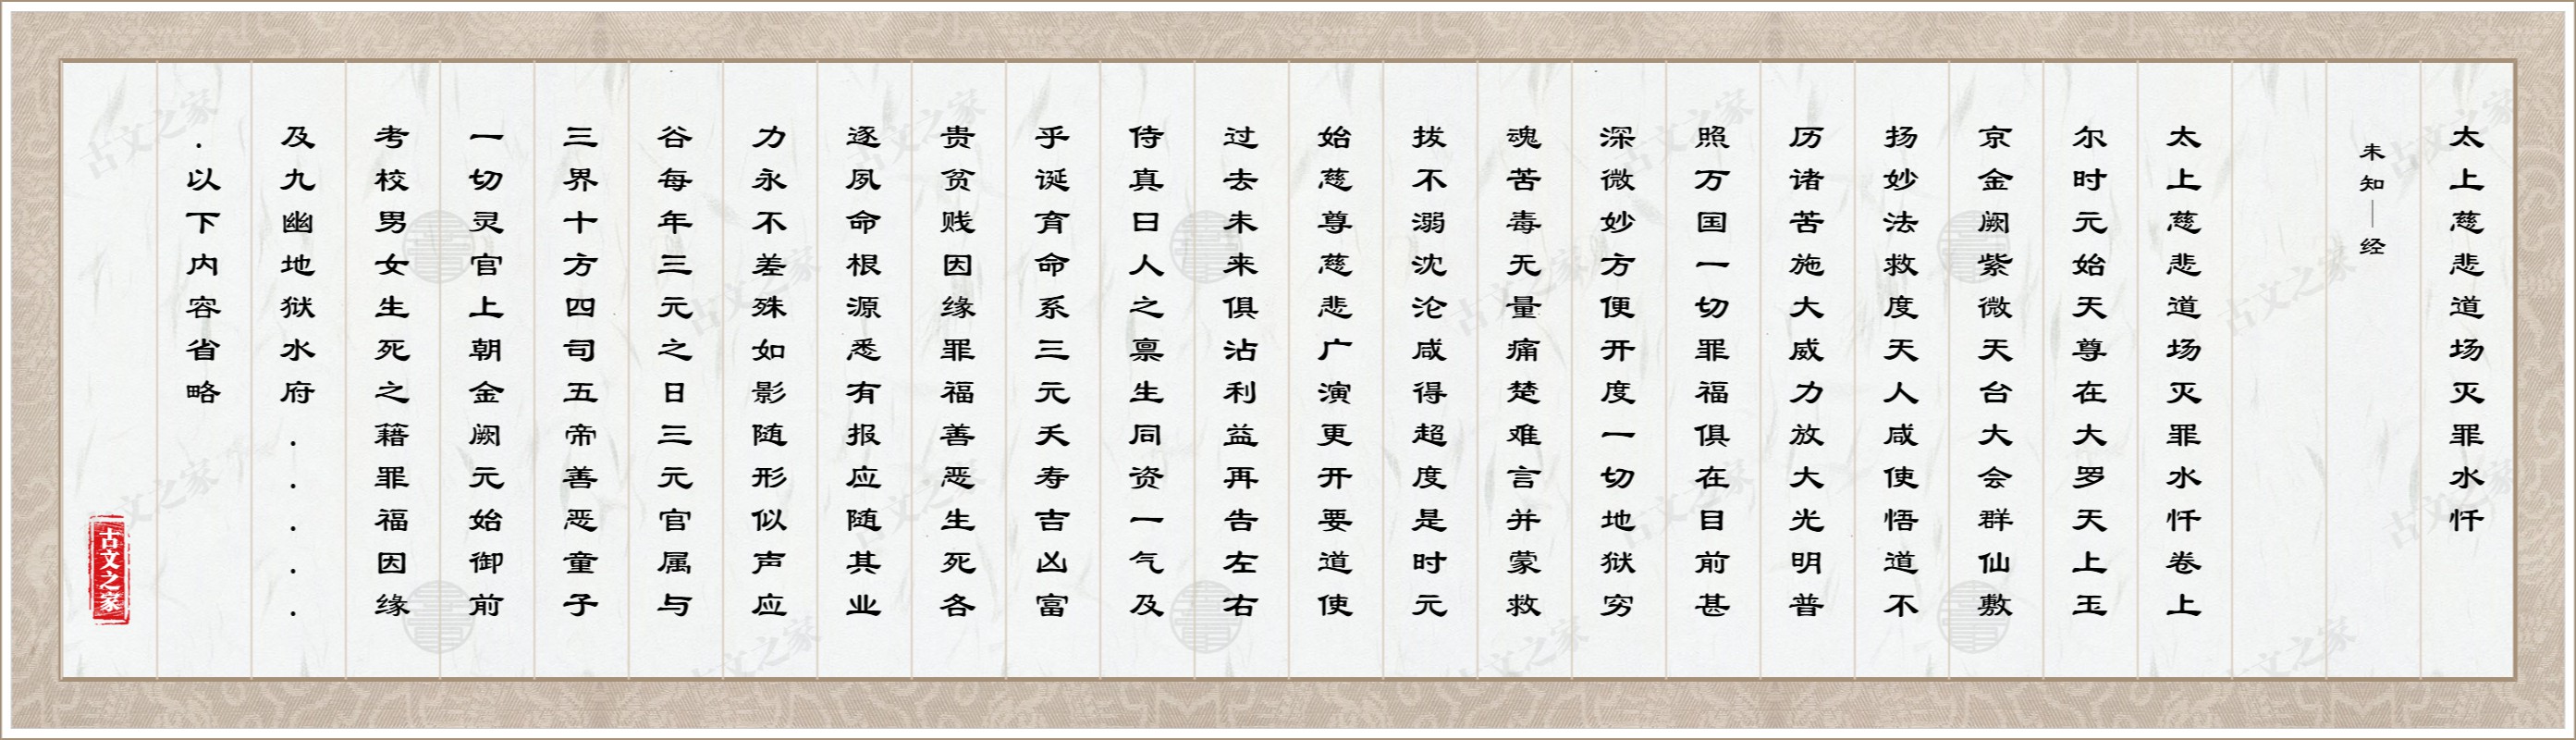 太上慈悲道场灭罪水忏
未知｜经
太上慈悲道场灭罪水忏卷上
尔时元始天尊在大罗天上玉
京金阙紫微天台大会群仙敷
扬妙法救度天人咸使悟道不
历诸苦施大威力放大光明普
照万国一切罪福俱在目前甚
深微妙方便开度一切地狱穷
魂苦毒无量痛楚难言并蒙救
拔不溺沈沦咸得超度是时元
始慈尊慈悲广演更开要道使
过去未来俱沾利益再告左右
侍真曰人之禀生同资一气及
乎诞育命系三元夭寿吉凶富
贵贫贱因缘罪福善恶生死各
逐夙命根源悉有报应随其业
力永不差殊如影随形似声应
谷每年三元之日三元官属与
三界十方四司五帝善恶童子
一切灵官上朝金阙元始御前
考校男女生死之籍罪福因缘
及九幽地狱水府.....
.以下内容省略
古文之家